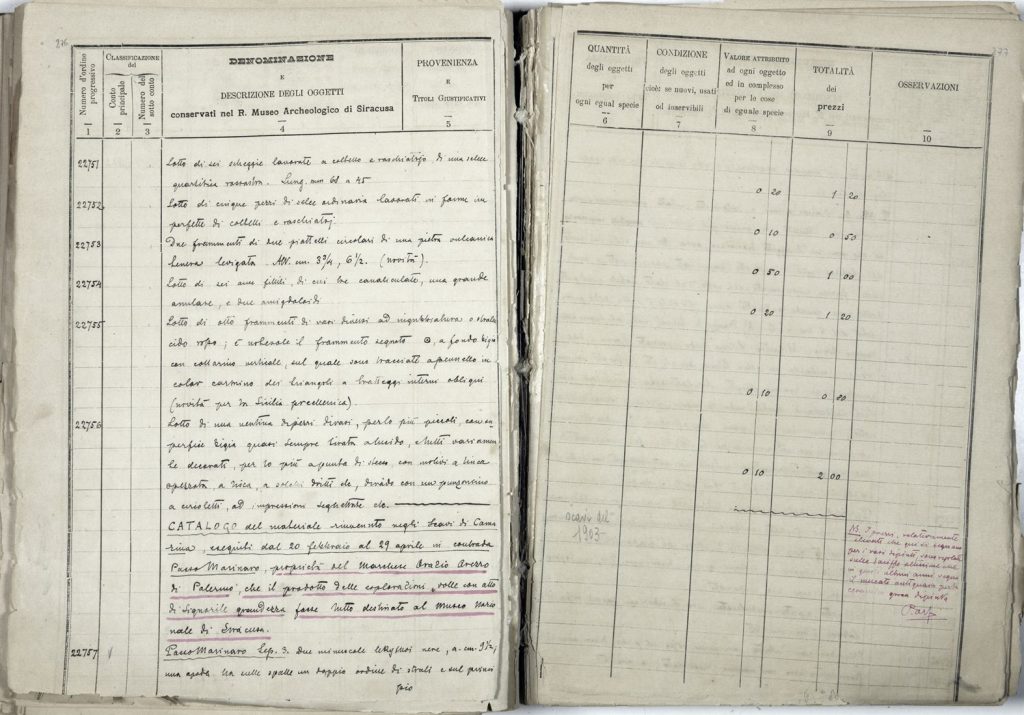 276
Numero d'ordine progressivo
Classificazione del
Conto principale
Numero del sotto conto
DENOMINAZIONE
E
DESCRIZIONE DEGLI OGGETTI
conservati nel R. Museo Archeologico di Siracusa
PROVENIENZA
E
Titoli Giustificativi
1 2 3 4 5
22751 Lotto di sei scheggie lavorate a coltello e raschiatojo di una selce
quarzitica rossastra. Lung. mm 68 a 45
22752 Lotto di cinque pezzi di selce ordinaria lavorati in forme im
perfette di coltelli e raschiatoj
22753 Due frammenti di due piattelli circolari di una pietra vulcanica
levigata. cm. 3 3/4, 6 1/2. (novità).
22754 Lotto di sei anse fittili, di cui tre canaliculate, una grande
anulare, e due amigdaloidi
22755 Lotto di otto frammenti di vasi diversi ad o stralu
cido rosso; è notevole il frammento segnato , a fondo bigio
con collarino verticale, sul quale sono tracciati a pennello in
color carmino dei triangoli a tratteggi interni obliqui
(novità per la Sicilia preellenica).
22756 Lotto di una ventina di pezzi di vasi, per lo più piccoli, con su
perficie bigia quasi sempre tirata a lucido, e tutti variamen
te decorati, per lo più a punta di stecco, con motivi a linea
spezzata, a lisca, a solchi dritti etc, ovvero con un punzoncino
a cerchietti, ad impressioni seghettate etc.
CATALOGO del materiale rinvenuto negli Scavi di Cama
rina, eseguiti dal 20 febbraio al 29 aprile in contrada
Passo Marinaro, proprietà del Marchese Orazio Arezzo
di Palermo, che il prodotto delle esplorazioni volle con atto
di signorile grandezza fosse tutto destinato al Museo Nazio
nale di Siracusa.
22757 Passo Marinaro Sep. 3. Due minuscole lekythoi nere, a. cm. 9 1/2,
una ha sulle spalle un doppio ordine di strali e sul princi
pio
277
QUANTITÀ
degli oggetti
per
ogni egual specie
CONDIZIONE
degli oggetti
cioè: se nuovi, usati
od inservibili
VALORE ATTRIBUITO
ad ogni oggetto
ed in complesso
per le cose
di eguale specie
TOTALITÀ
dei
prezzi
OSSERVAZIONI
6 7 8 9 10
0 20 1 20
0 10 0 50
0 50 1 00
0 20 1 20
0 10 0 80
0 10 2 00
scavi del
1903
N. I prezzi, relativamente
elevati che qui si segnano
per i vasi dipinti, sono regolati
sulle tariffe altissime che
in questi ultimi anni segna
il mercato antiquario per la
ceramica greca dipinta